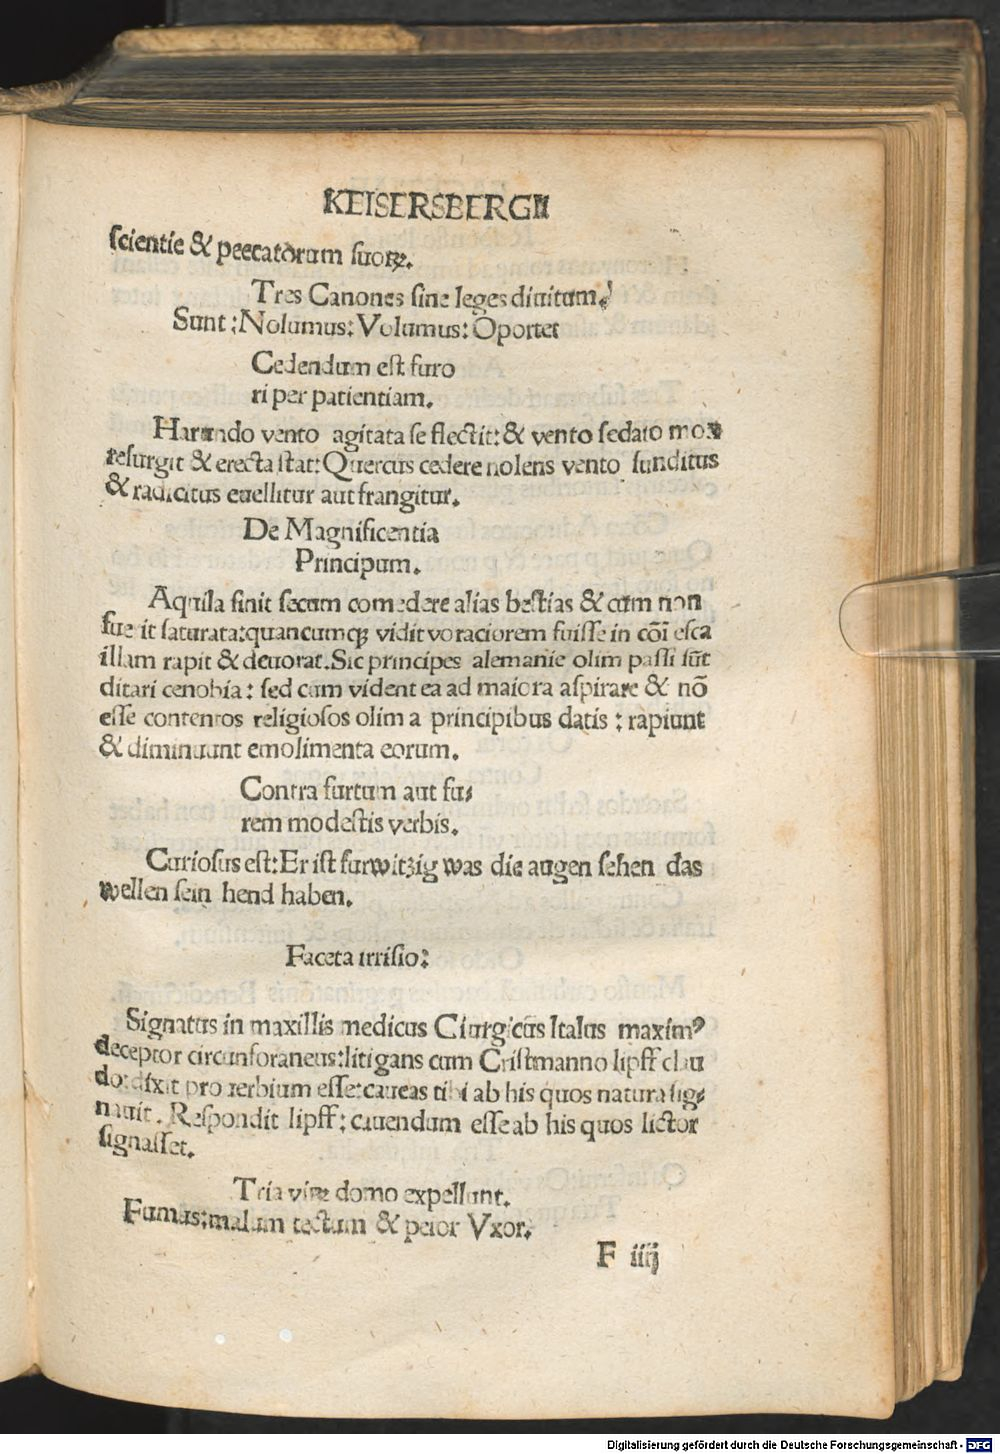 KEISERSBERGII
ſcientie & peccatorum ſuoꝝ.
Tres Canones ſiue leges diuitum/
Sunt:Nolumus:Volumus:Oportet
Cedendum eſt furo
ri per patientiam.
Harundo vento agitata ſe flectit:& vento ſedato mox
reſurgit & erecta ſtat:Quercus cedere nolens vento funditus
& radicitus euellitur aut frangitur.
De Magnificentia
Principum.
Aquila ſinit ſecum comedere alias beſtias & cum non
fuerit ſaturata:quancumqꝫ vidit voraciorem fuiſſe in cōi eſca
illam rapit & deuorat.Sic principes alemanie olim paſſi sūt
ditari cenobia: ſed cum vident ea ad maiora aſpirare & nō
eſſe contentos religioſos olim a principibus datis: rapiunt
& diminuunt emolimenta eorum.
Contra furtum aut fu⸗
rem modeſtis verbis.
Curioſus eſt:Er iſt furwitzig was die augen ſehen das
wellen ſein hend haben.
Faceta irriſio:
Signatus in maxillis medicus Cirurgicus Italus maximꝰ
deceptor circunforaneus:litigans cum Criſtmanno lipff clau
do:dixit prouerbium eſſe:caueas tibi ab his quos natura ſig⸗
nauit. Reſpondit lipff: cauendum eſſe ab his quos lictor
ſignaſſet.
Tria virum domo expellunt.
Fumus:malum tectum & peior Vxor.
F iiij
Digitalisierung gefördert durch die Deutsche Forschungsgemeinschaft - DFG